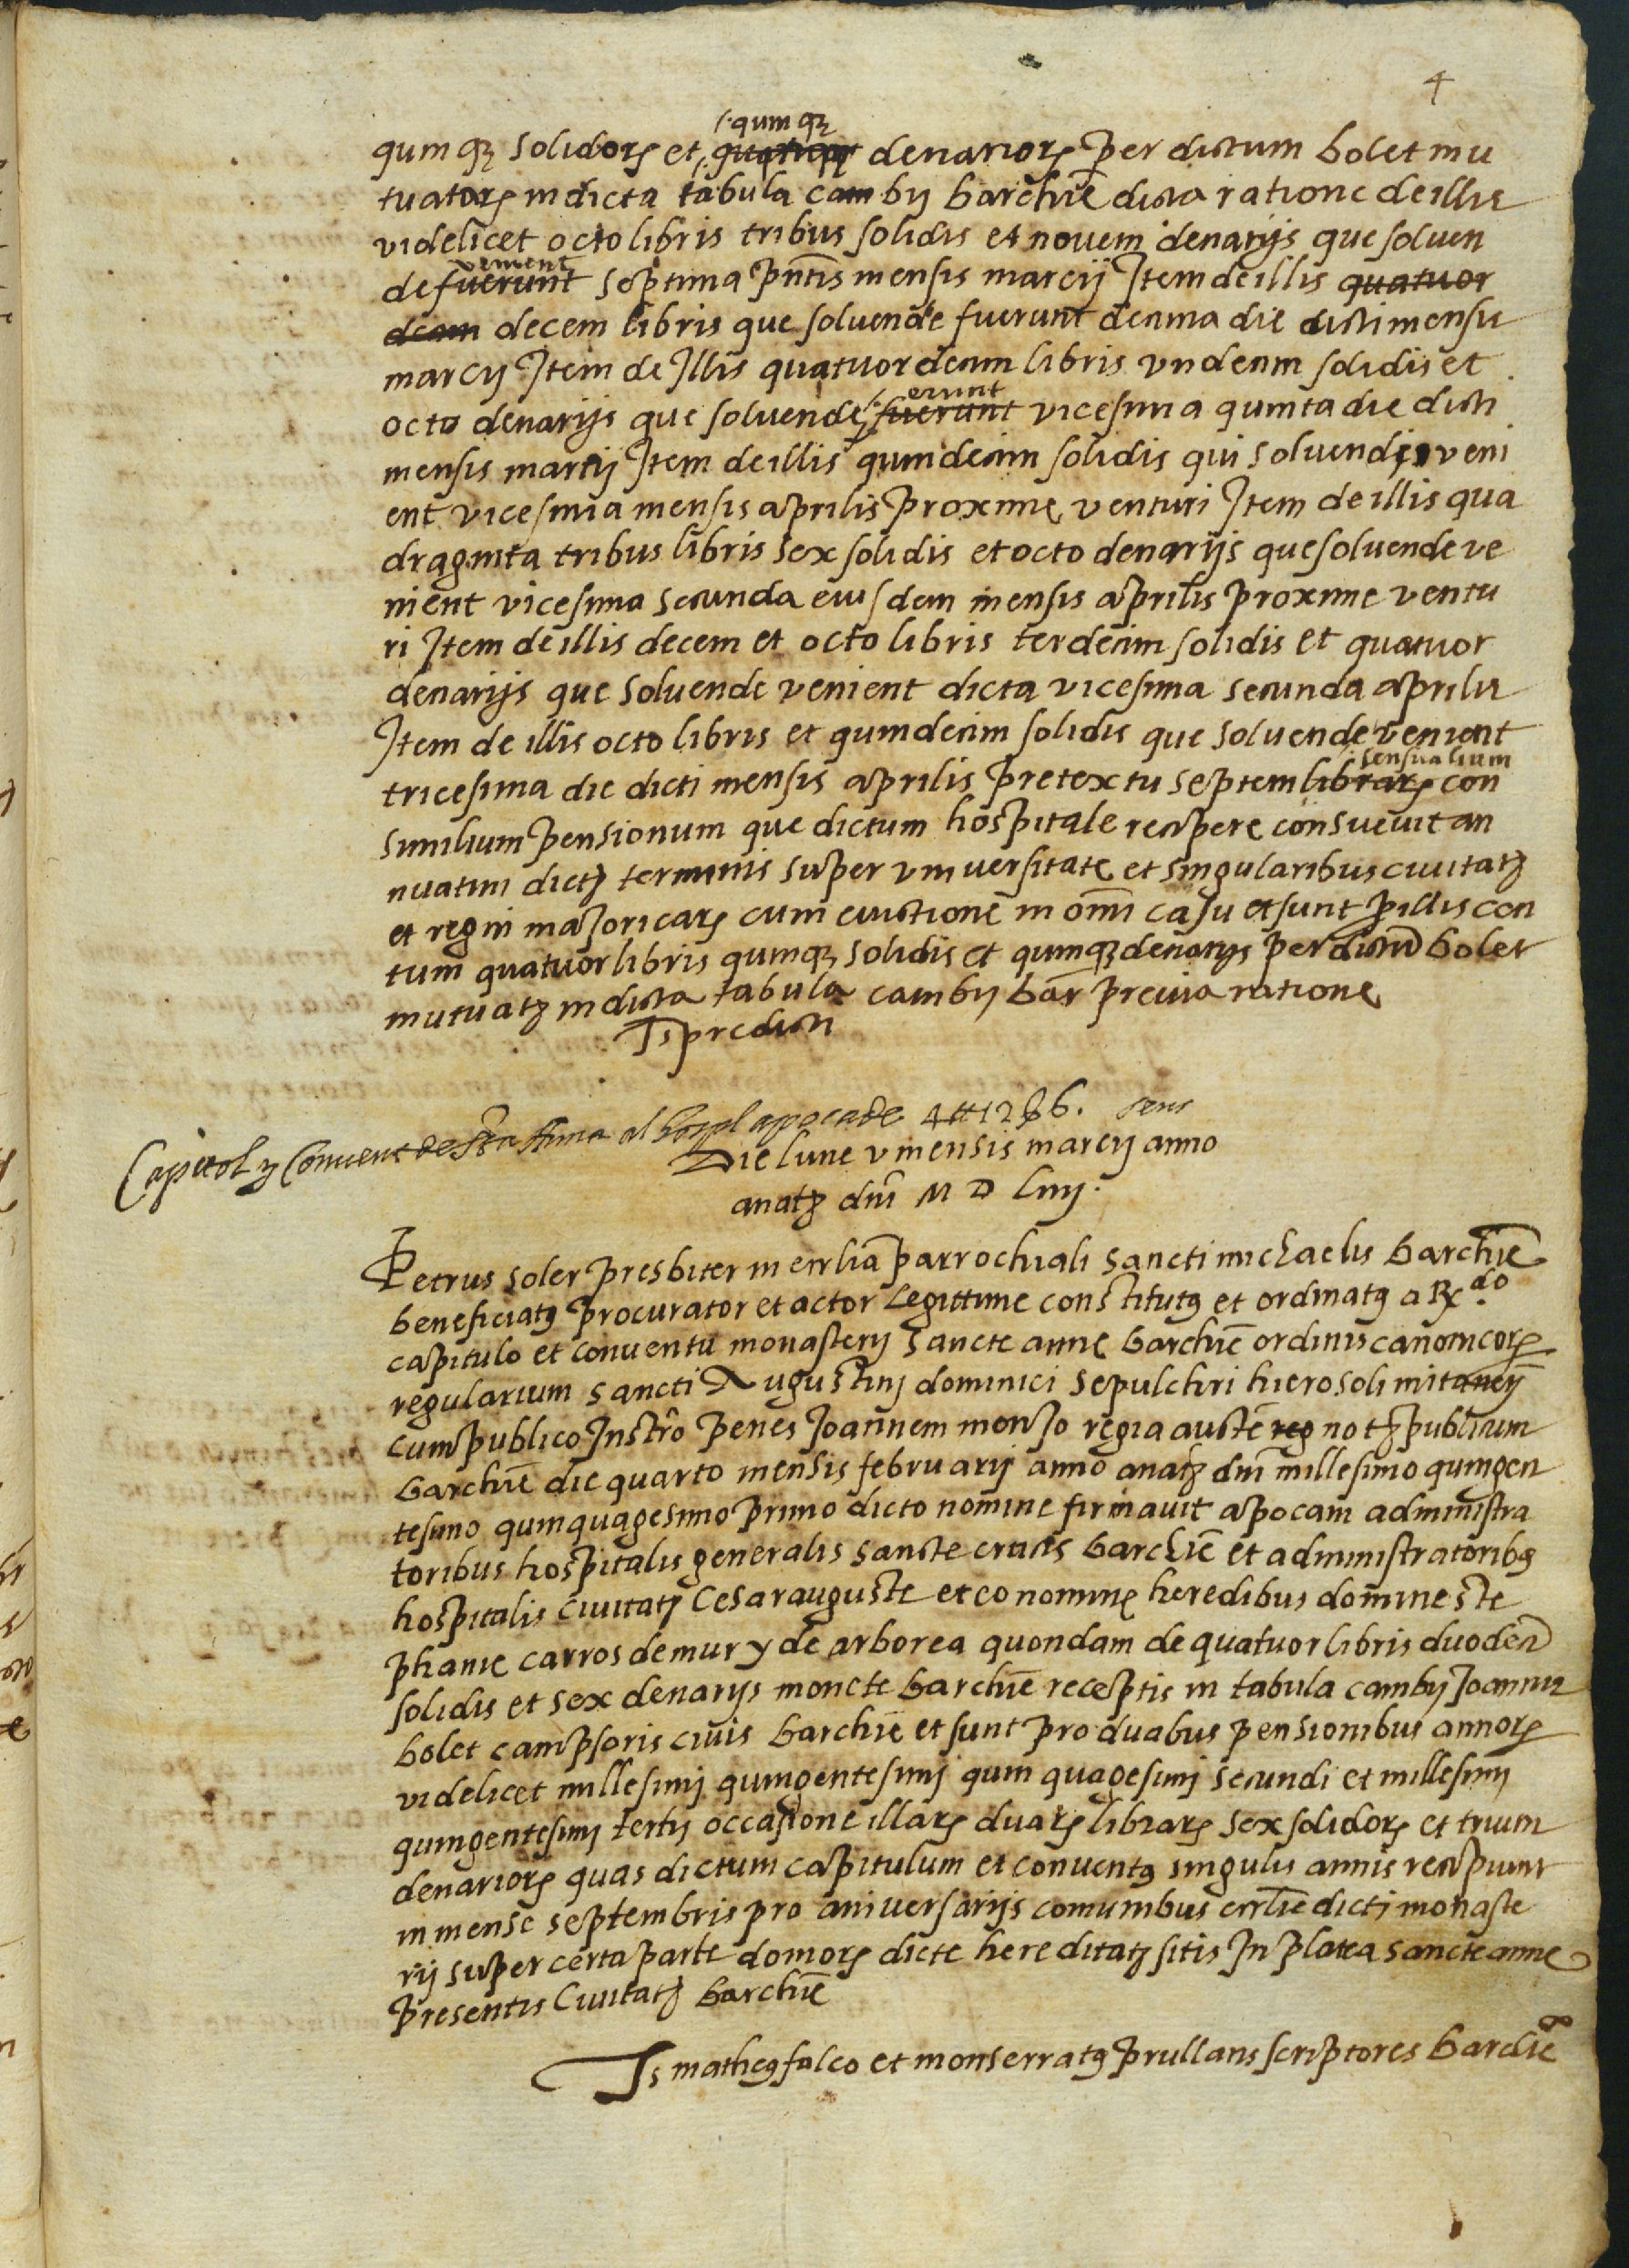 4
quinqȝ
quinqȝ solidorꝝ et quatuor denariorꝝ per dictum bolet mu
tuatorꝝ in dicta tabula cambij barchie dicta ratione de illis
videlicet octo libris tribus solidis et novem denarijs que solven
venient
de fuerunt septima pntis mensis marcij Item de illis quatuor
decim decem libris que solvende fuerunt decima die dicti mensis
marcij Item de Illis quatuordecim libris undecim solidis et
erunt
octo denarijs que solvende fuerunt vicesima quinta die dicti
mensis martij Item de illis quindecim solidis qui solvendi veni
ent vicesima mensis aprilis proxime venturi Item de illis qua
draginta tribus libris sex solidis et octo denarijs que solvende ve
nient vicesima secunda eiusdem mensis aprilis proxime ventu
ri Item de illis decem et octo libris terdecim solidis et quatuor
denarijs que solvende venient dicta vicesima secunda aprilis
Item de illis octo libris et quindecim solidis que solvende venient
sensualium
tricesima die dicti mensis aprilis pretextu septem librarꝝ con
similium pensionum que dictum hospitale recipere consuevit an
nuatim dictȝ terminis super universitate et singularibus civitatȝ
et regni majoricarꝝ cum evictione in omi casu et sunt ꝑ illis cen
tum quatuor libris quinqȝ solidis et quinqȝ denarijs per dictũ bolet
mutuatȝ in dicta tabula cambij bar previa ratione
Ts predicti
Capitol y Convent de Sta Anna al hospl apoca de 4 ₶ 12 ß 6. sens
Die lune v mensis marcij anno
anatȝ dni M D Liiij.
Petrus soler presbiter in ecclia parrochiali sancti michaelis barchie
beneficiatꝯ procurator et actor legittime constitutꝯ et ordinatꝯ a Rdo
capitulo et conventu monasterij sancte anne barchie ordinis canonicorꝝ
regularium sancti Augustinj dominici sepulchri hierosolimitanij
cum publico Instro penes Joannem monjo regia aucte reg notȝ publicum
barchie die quarto mensis februarij anno anatȝ dni millesimo quingen
tesimo quinquagesimo primo dicto nomine firmavit apocam administra
toribus hospitalis generalis sancte crucis barchie et administratoribꝯ
hospitalis civitatȝ Cesarauguste et eo nomine heredibus domine ste
phanie carros de mur y de arborea quondam de quatuor libris duodeci
solidis et sex denarijs monete barchie receptis in tabula cambij Joannis
bolet campsoris civis barchie et sunt pro duabus pensionibus annorꝝ
videlicet millesimj quingentesimj quinquagesimj secundi et millesimj
quingentesimj tertij occasione illarꝝ duarꝝ librarꝝ sex solidorꝝ et trium
denariorꝝ quas dictum capitulum et conventꝯ singulis annis recipiunt
in mense septembris pro aniversarijs comunibus ecclie dictj monaste
rij super certa parte domorꝝ dicte hereditatȝ sitis In platea sancte anne
presentis Civitatȝ barchie
Ts matheꝯ falco et monserratꝯ prullans scriptores barchie